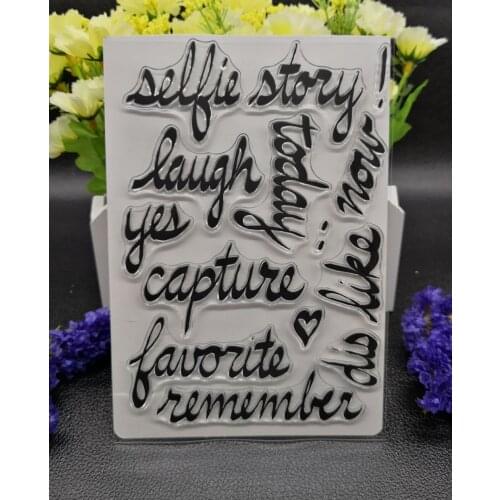 selfie story !
laugh
today
now
yes
:
like
capture
dis
favorite
remember